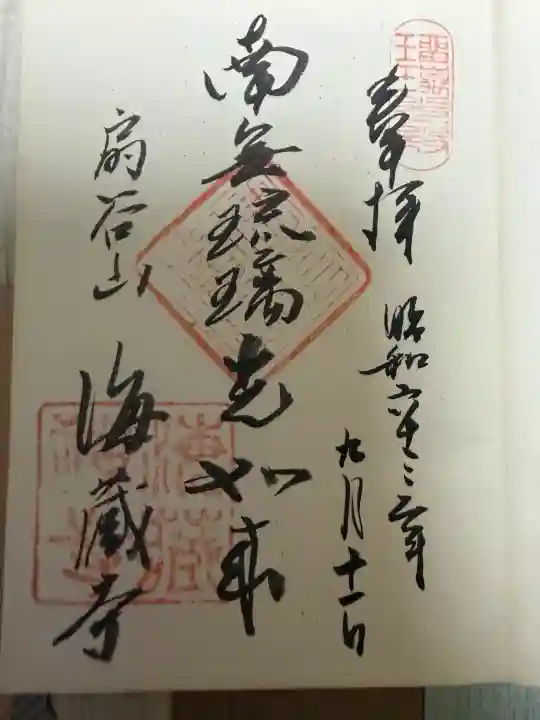 奉拝
昭和六十三年
九月十一日
南無瑠璃光如来
扇谷山
海蔵寺
海蔵禅寺